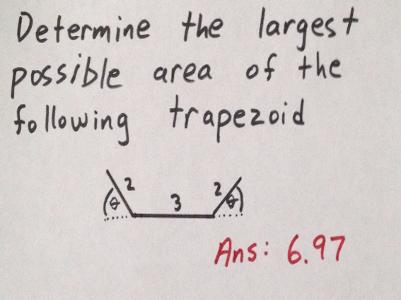 Determine the largest
possible area of the
following trapezoid
2 3 2
θ θ
Ans: 6.97